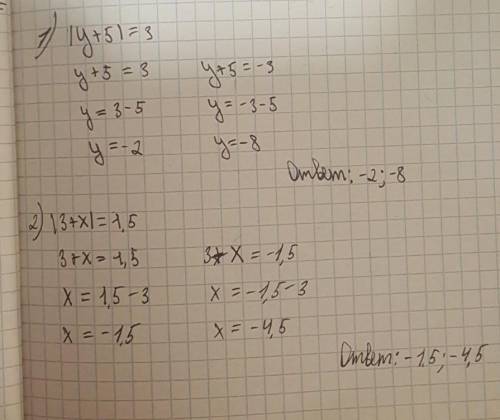 1) |y+5|=3
y+5=3 y+5=-3
y=3-5 y=-3-5
y=-2 y=-8
Ответ: -2;-8
2) |3+x|=1,5
3+x=1,5 3+x=-1,5
x=1,5-3 x=-1,5-3
x=-1,5 x=-4,5
Ответ: -1,5;-4,5